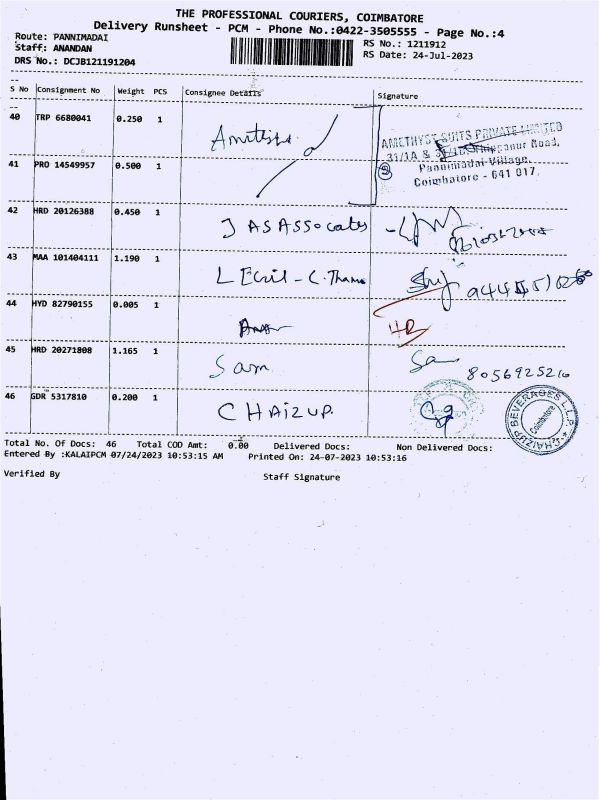 THE PROFESSIONAL COURIERS, COIMBATORE
Delivery Runsheet - PCM - Phone No.:0422-3505555 - Page No.:4
Route: PANNIMADAI RS No.: 1211912
Staff: ANANDAN RS Date: 24-Jul-2023
DRS No.: DCJB121191204
S No Consignment No Weight PCS Consignee Details Signature
40 TRP 6680041 0.250 1
AMETHYST SUITS PRIVATE LIMITED
31/1A & Road,
41 PRO 14549957 0.500 1 Pannimadai Village,
Coimbatore - 641 017.
42 HRD 20126388 0.450 1 J AS ASSocates
43 MAA 101404111 1.190 1
44 HYD 82790155 0.005 1
45 HRD 20271808 1.165 1 Sam Sa 8056925210
46 GDR 5317810 0.200 1 CHAIZUP. CHAIZUP BEVERAGES L.L.P. Coimbatore
Total No. Of Docs: 46 Total COD Amt: 0.00 Delivered Docs: Non Delivered Docs:
Entered By :KALAIPCM 07/24/2023 10:53:15 AM Printed On: 24-07-2023 10:53:16
Verified By Staff Signature